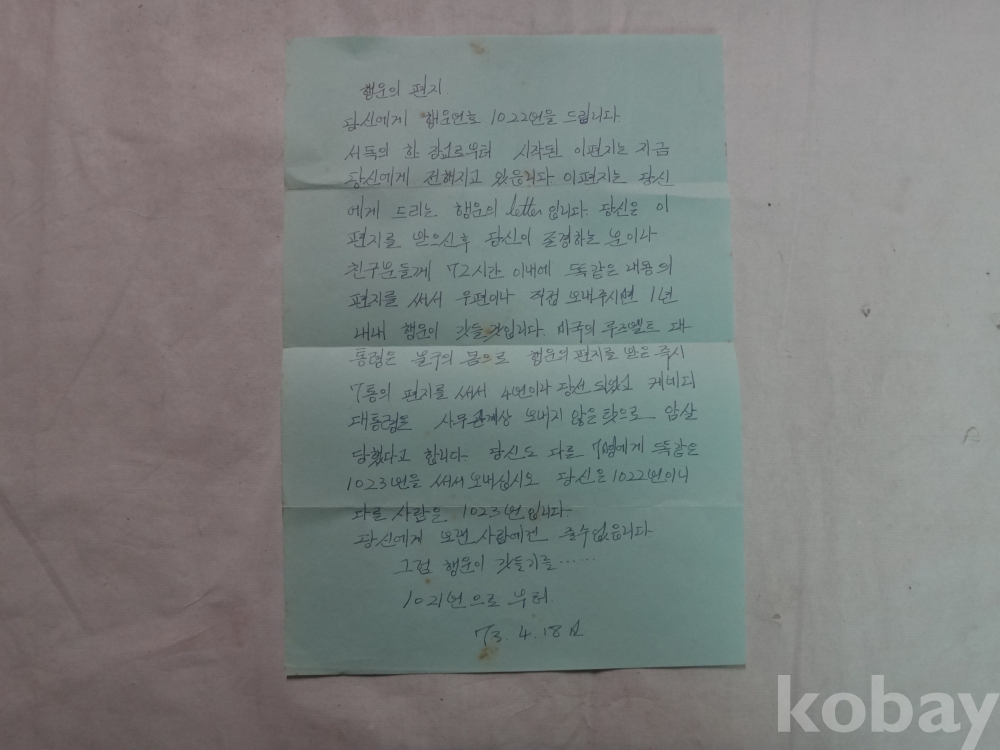 행운의 편지.
당신에게 행운번호 1022번을 드립니다.
서독의 한 로부터 시작된 이편지는 지금
당신에게 전해지고 있읍니다 이편지는 당신
에게 드리는 행운의 letter입니다. 당신은 이
편지를 받으신후 당신이 존경하는 분이나
친구분들께 72시간 이내에 똑같은 내용의
편지를 써서 우편이나 직접 보내주시면 1년
내내 행운이 깃들것입니다. 미국의 루즈벨트 대
통령은 불구의 몸으로 행운의 편지를 받은 즉시
7통의 편지를 써서 4번이나 당선 되었고 케네디
대통령은 사무관계상 보내지 않은 탓으로 암살
당했다고 합니다. 당신도 다른 7명에게 똑같은
1023번을 써서 보내십시오 당신은 1022번이나
다른 사람은 1023번입니다.
당신에게 보낸 사람에겐 줄수없읍니다
그럼 행운이 깃들기를……
1021번으로 부터.
73. 4. 18日
kobay